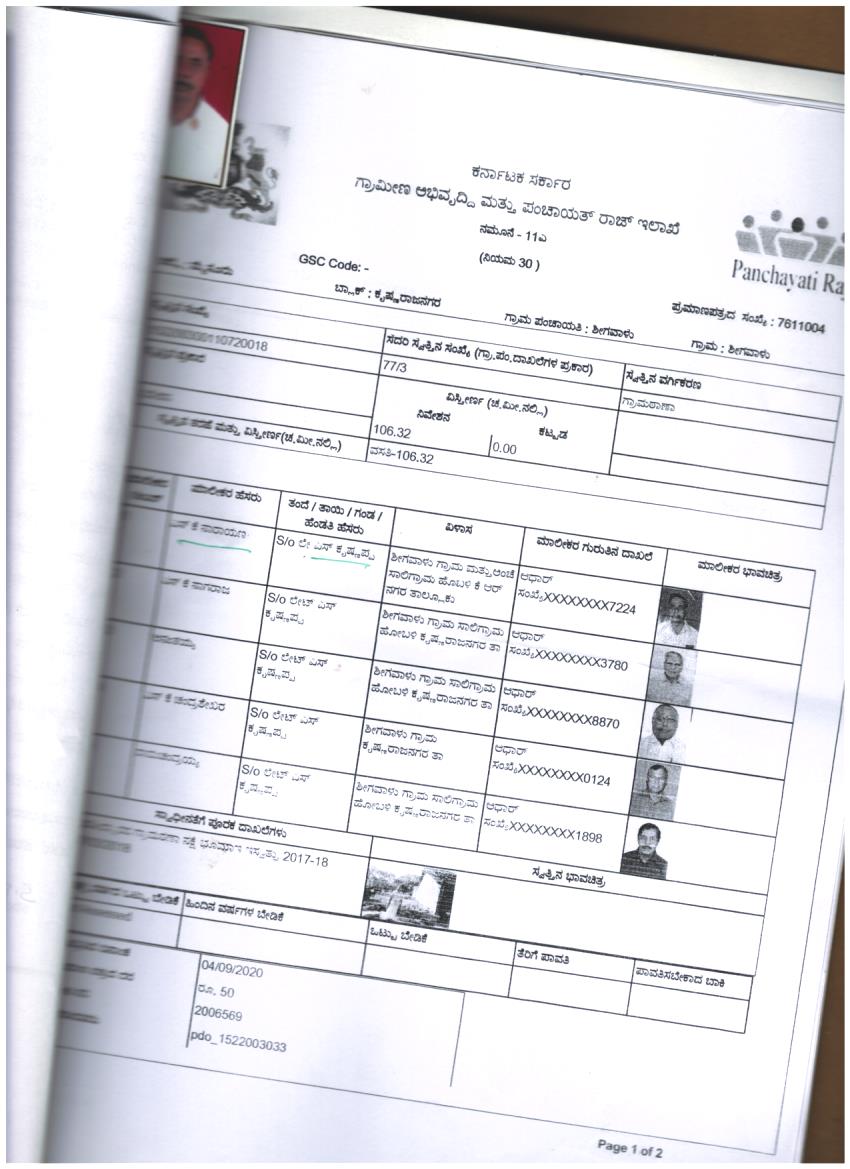 ಕರ್ನಾಟಕ ಸರ್ಕಾರ
ಗ್ರಾಮೀಣ ಅಭಿವೃದ್ದಿ ಮತ್ತು ಪಂಚಾಯತ್ ರಾಜ್ ಇಲಾಖೆ
ನಮೂನೆ - 11ಎ
(ನಿಯಮ 30 )
Panchayati Ra
ಮೈಸೂರು
GSC Code: -
ಬ್ಲಾಕ್ : ಕೃಷ್ಣರಾಜನಗರ
ಗ್ರಾಮ ಪಂಚಾಯತಿ : ಶೀಗವಾಳು
ಪ್ರಮಾಣಪತ್ರದ ಸಂಖ್ಯೆ : 7611004
ಗ್ರಾಮ : ಶೀಗವಾಳು
ಸಂಖ್ಯೆ
ಸದರಿ ಸ್ವತ್ತಿನ ಸಂಖ್ಯೆ (ಗ್ರಾ.ಪಂ.ದಾಖಲೆಗಳ ಪ್ರಕಾರ)
ಸ್ವತ್ತಿನ ವರ್ಗೀಕರಣ
77/3
ಗ್ರಾಮಠಾಣಾ
ವಿಸ್ತೀರ್ಣ (ಚ.ಮೀ.ನಲ್ಲಿ)
ನಿವೇಶನ
ಕಟ್ಟಡ
106.32
0.00
ಮತ್ತು ವಿಸ್ತೀರ್ಣ(ಚ.ಮೀ.ನಲ್ಲಿ)
ವಸತಿ-106.32
ಮಾಲೀಕರ ಹೆಸರು
ತಂದೆ / ತಾಯಿ / ಗಂಡ / ಹೆಂಡತಿ ಹೆಸರು
ವಿಳಾಸ
ಮಾಲೀಕರ ಗುರುತಿನ ದಾಖಲೆ
ಮಾಲೀಕರ ಭಾವಚಿತ್ರ
ಎಸ್ ಕೆ ನಾರಾಯಣ
S/o ಲೇ ಎಸ್ ಕೃಷ್ಣಪ್ಪ
ಶೀಗವಾಳು ಗ್ರಾಮ ಮತ್ತು ಅಂಚೆ
ಸಾಲಿಗ್ರಾಮ ಹೊಬಳಿ ಕೆ ಆರ್
ನಗರ ತಾಲ್ಲೂಕು
ಆಧಾರ್
ಸಂಖ್ಯೆXXXXXXXX7224
ಎಸ್ ಕೆ ನಾಗರಾಜ
S/o ಲೇಟ್ ಎಸ್
ಕೃಷ್ಣಪ್ಪ
ಶೀಗವಾಳು ಗ್ರಾಮ ಸಾಲಿಗ್ರಾಮ
ಹೋಬಳಿ ಕೃಷ್ಣರಾಜನಗರ ತಾ
ಆಧಾರ್
ಸಂಖ್ಯೆXXXXXXXX3780
S/o ಲೇಟ್ ಎಸ್
ಕೃಷ್ಣಪ್ಪ
ಶೀಗವಾಳು ಗ್ರಾಮ ಸಾಲಿಗ್ರಾಮ
ಹೋಬಳಿ ಕೃಷ್ಣರಾಜನಗರ ತಾ
ಆಧಾರ್
ಸಂಖ್ಯೆXXXXXXXX8870
ಎಸ್ ಕೆ ಚಂದ್ರಶೇಖರ
S/o ಲೇಟ್ ಎಸ್
ಕೃಷ್ಣಪ್ಪ
ಶೀಗವಾಳು ಗ್ರಾಮ
ಕೃಷ್ಣರಾಜನಗರ ತಾ
ಆಧಾರ್
ಸಂಖ್ಯೆXXXXXXXX0124
S/o ಲೇಟ್ ಎಸ್
ಕೃಷ್ಣಪ್ಪ
ಶೀಗವಾಳು ಗ್ರಾಮ ಸಾಲಿಗ್ರಾಮ
ಹೋಬಳಿ ಕೃಷ್ಣರಾಜನಗರ ತಾ
ಆಧಾರ್
ಸಂಖ್ಯೆXXXXXXXX1898
ಸ್ವಾಧೀನತೆಗೆ ಪೂರಕ ದಾಖಲೆಗಳು
ಸ್ವತ್ತಿನ ಭಾವಚಿತ್ರ
2017-18
ಒಟ್ಟು ಬೇಡಿಕೆ
ಹಿಂದಿನ ವರ್ಷಗಳ ಬೇಡಿಕೆ
ಒಟ್ಟು ಬೇಡಿಕೆ
ತೆರಿಗೆ ಪಾವತಿ
ಪಾವತಿಸಬೇಕಾದ ಬಾಕಿ
04/09/2020
ರೂ. 50
2006569
pdo_1522003033
Page 1 of 2